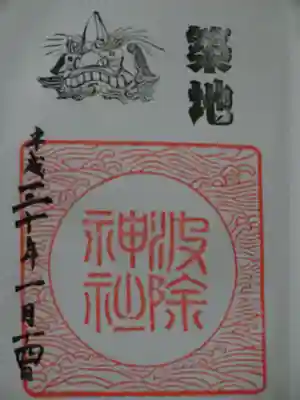 築地
波除
神社
平成三十年一月二十四日